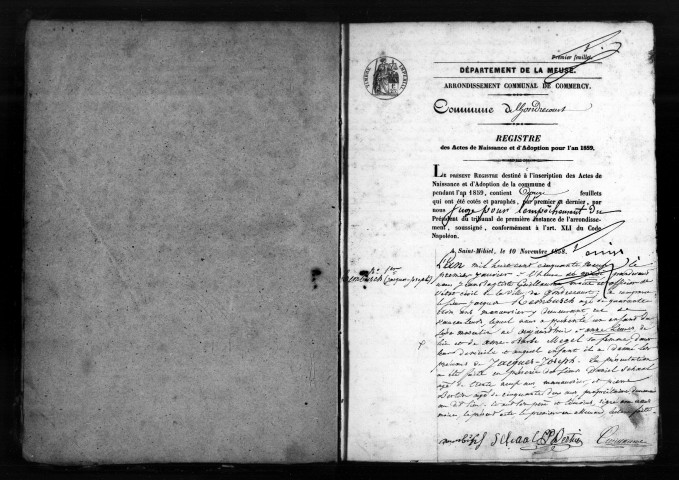 Premier feuillet.
DÉPARTEMENT DE LA MEUSE.
ARRONDISSEMENT COMMUNAL DE COMMERCY.
Commune de Gondrecourt
REGISTRE
des Actes de Naissance et d'Adoption pour l'an 1859.
LE PRÉSENT REGISTRE destiné à l'inscription des Actes de
Naissance et d'Adoption de la commune d
pendant l'an 1859, contient Douze feuillets
qui ont été cotés et paraphés, par premier et dernier, par
nous Juge pour l'empêchement du
Président du tribunal de première instance de l'arrondisse-
ment, soussigné, conformément à l'art. XLI du Code
Napoléon.
A Saint-Mihiel, le 10 Novembre 1858.
N° 1er
Reinbursch (Jacques-Joseph)
L'an mil huit cent cinquante neuf, le
premier janvier, à l'heure de midi, pardevant
nous Jean Baptiste Guillaume maire et officier de
l'état civil de la ville de Gondrecourt, a comparu
le sieur Jacques Reinbursch âgé de quarante
trois ans manouvrier, demeurant rue de
Vaucouleurs, lequel nous a présenté un enfant du
sexe masculin né aujourd'hui à onze heures de
lui et de Anne Barbe Megel sa femme, dans
leur domicile et auquel enfant il a donné les
prénoms de Jacques-Joseph. La présentation
a été faite en présence des sieurs Daniel Schaal
âgé de trente neuf ans manouvrier, et pierre
Bertin âgé de cinquante deux ans propriétaire demeurant
au dit lieu
Schaal P Bertin Guillaume